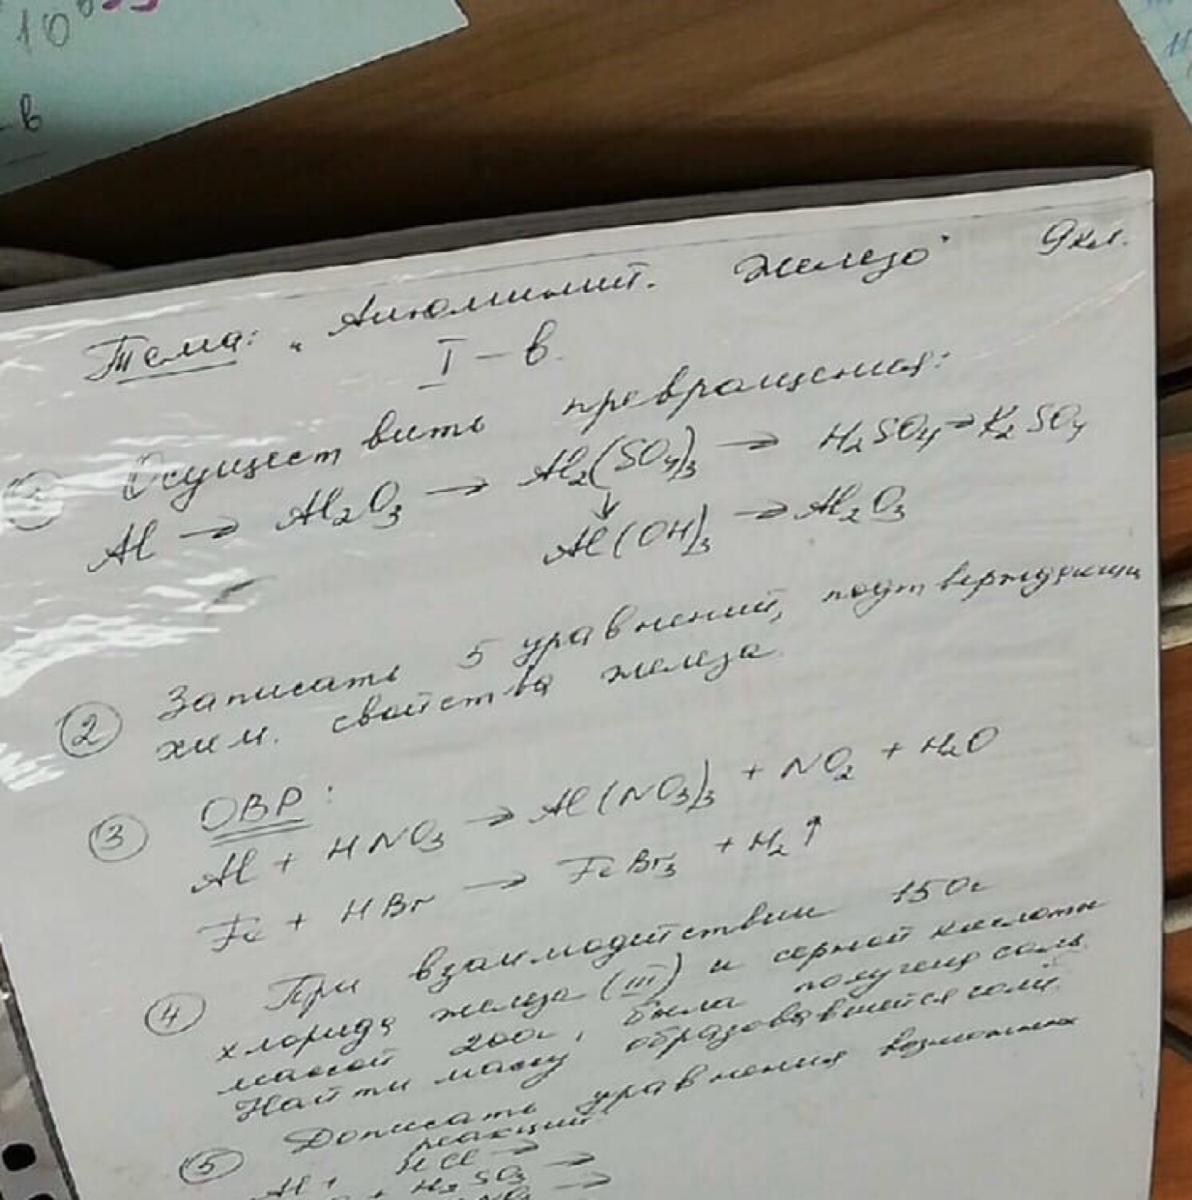 10
-в
9 кл.
Тема: „Алюминий. Железо"
I - в.
1 Осуществить превращения:
Al → Al2O3 → Al2(SO4)3 → H2SO4 → K2SO4
↓
Al(OH)3 → Al2O3
2 Записать 5 уравнений, подтверждающи
хим. свойства железа.
3 ОВР:
Al + HNO3 → Al(NO3)3 + NO2 + H2O
Fe + HBr → FeBr3 + H2↑
4 При взаимодействии 150г
хлорида железа (III) и серной кислоты
массой 200г, была получена соль.
Найти массу образовавшейся соли.
5 Дописать уравнения возможных
реакций
Al + HCl →
+ H2SO3 →
→